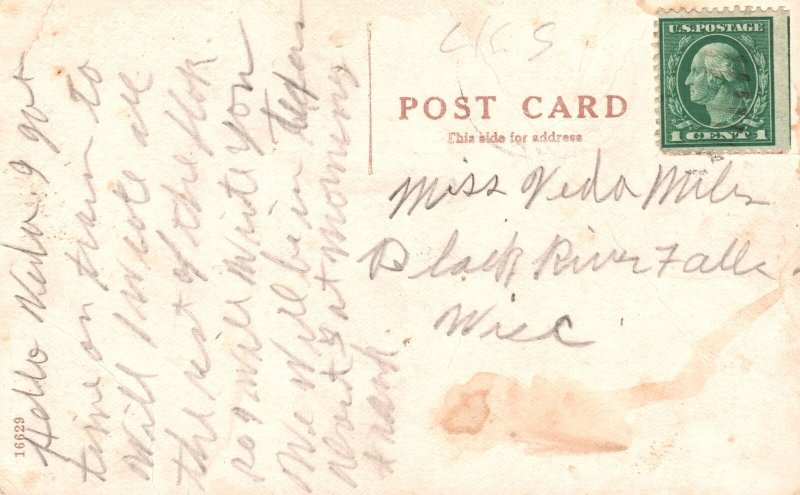 C K S
U.S. POSTAGE
1 CENT 1
POST CARD
This side for address
Miss Veda Miles
Black River Falls
Wisc
Hello Veda. I got
time on train to
will I wrote all
the rest of the
so will write you
We will be in Texas
next at morning.
Frank.
16629